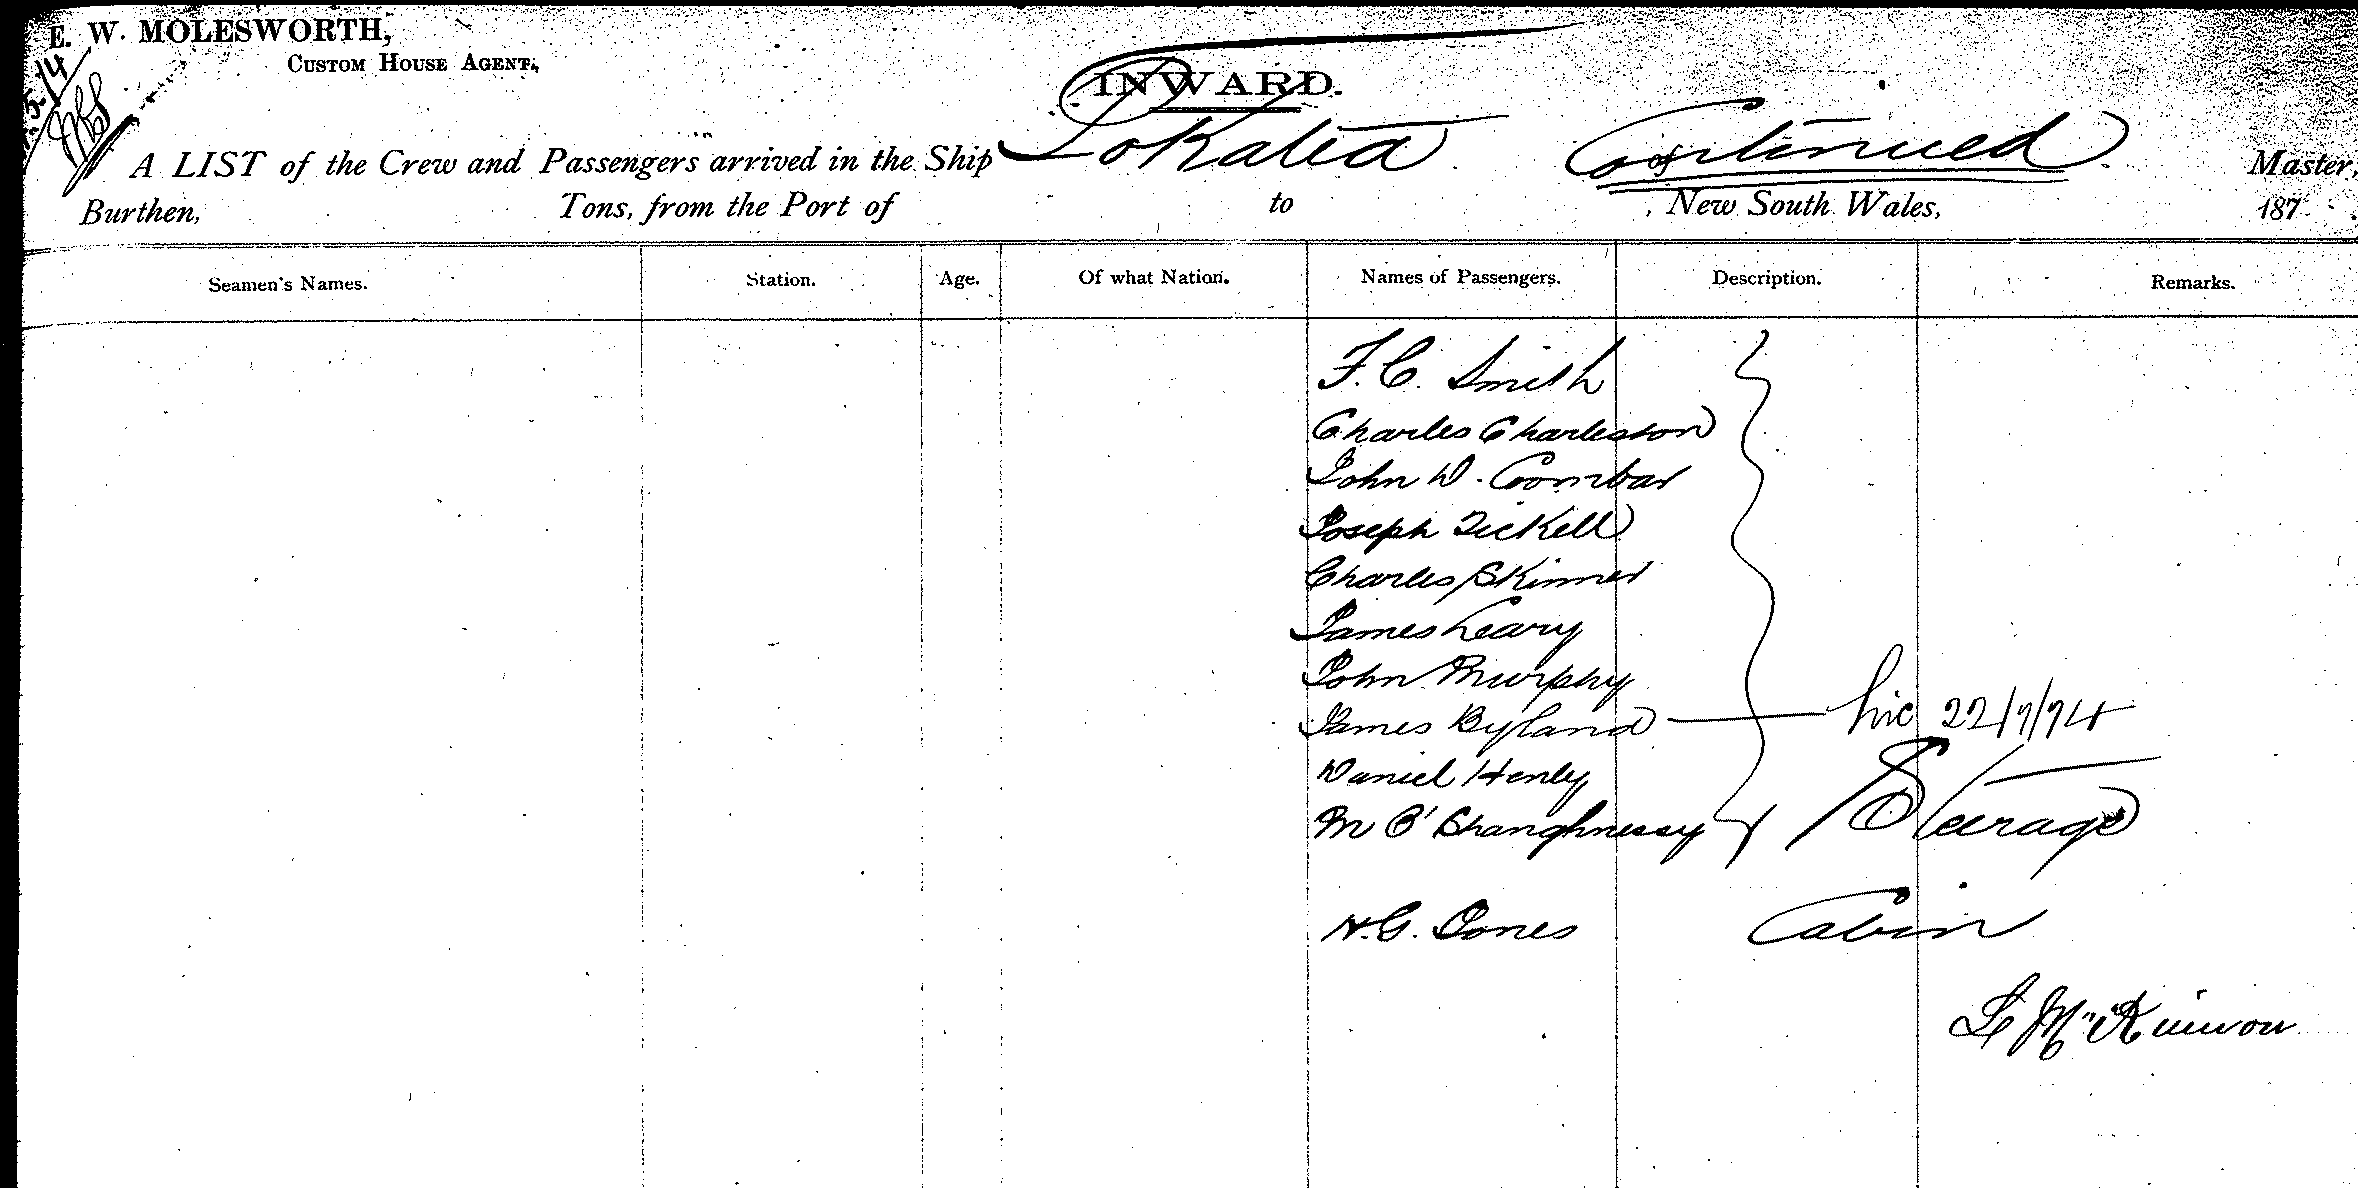 E. W. MOLESWORTH,
CUSTOM HOUSE AGENT.
INWARD.
A LIST of the Crew and Passengers arrived in the Ship of Continued Master,
Burthen, Tons, from the Port of to , New South Wales, 187
Seamen's Names. Station. Age. Of what Nation. Names of Passengers. Description. Remarks.
F. C. Smith
Charles Charleston
John W. Coombar
Joseph Tickell
Charles Skinner
James Leary
John Murphy
James Byland
Daniel Henly
M O'Shaughnessy Steerage
Jones Cabin
McKinnon